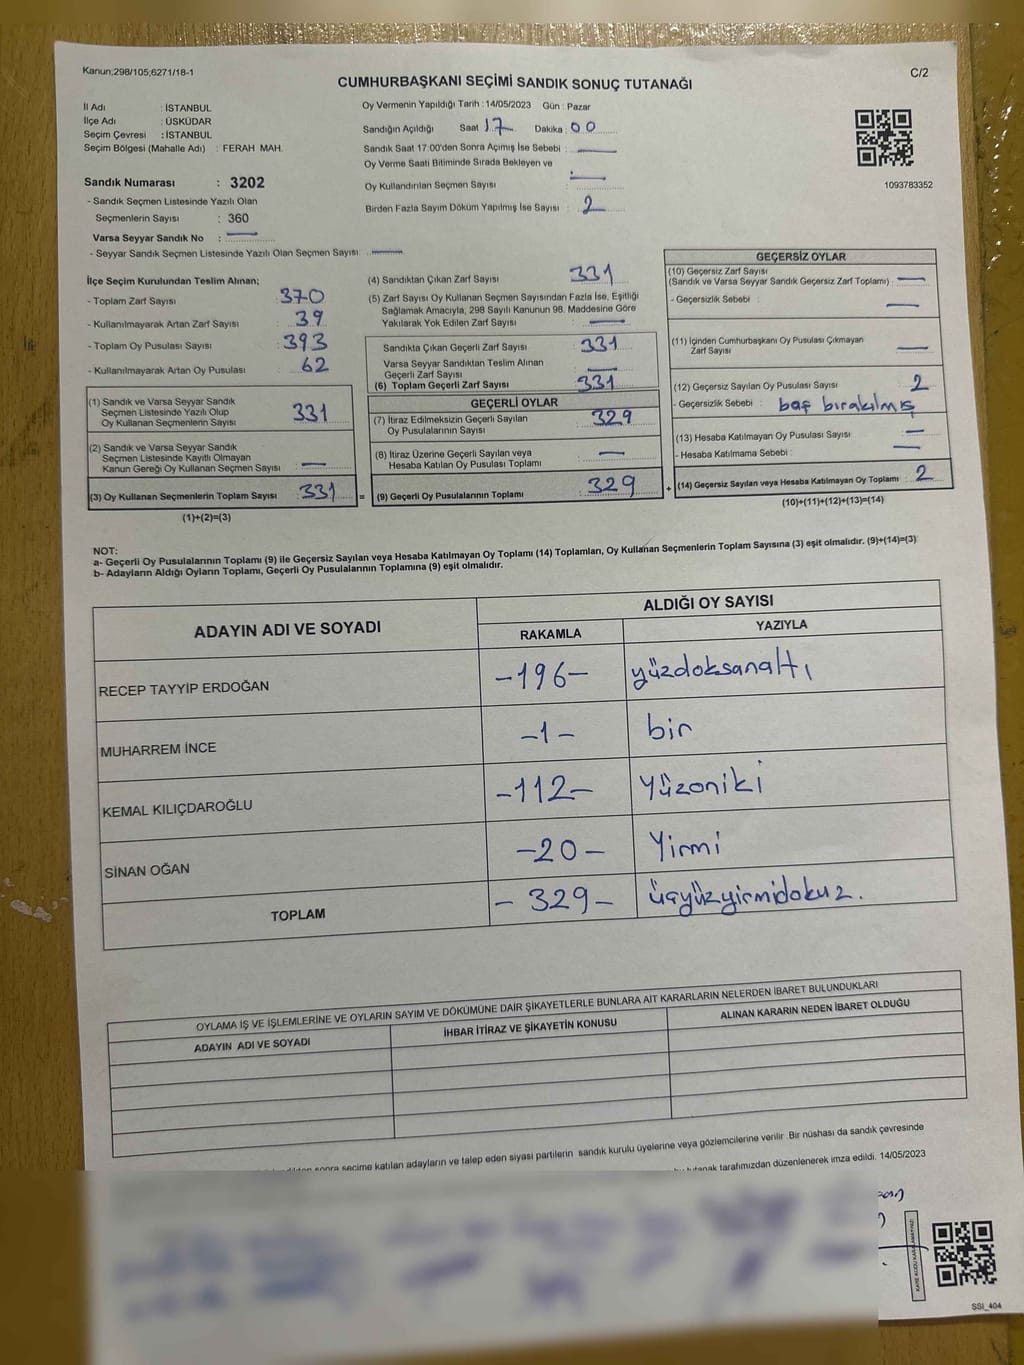 Kanun;298/105;6271/18-1
C/2
CUMHURBAŞKANI SEÇİMİ SANDIK SONUÇ TUTANAĞI
İl Adı : İSTANBUL
İlçe Adı : ÜSKÜDAR
Seçim Çevresi : İSTANBUL
Seçim Bölgesi (Mahalle Adı) : FERAH MAH.
Sandık Numarası : 3202
- Sandık Seçmen Listesinde Yazılı Olan
Seçmenlerin Sayısı : 360
Varsa Seyyar Sandık No :
- Seyyar Sandık Seçmen Listesinde Yazılı Olan Seçmen Sayısı:
Oy Vermenin Yapıldığı Tarih : 14/05/2023 Gün : Pazar
Sandığın Açıldığı Saat 17 Dakika : 00
Sandık Saat 17:00'den Sonra Açımış İse Sebebi :
Oy Verme Saati Bitiminde Sırada Bekleyen ve
Oy Kullandırılan Seçmen Sayısı :
Birden Fazla Sayım Döküm Yapılmış İse Sayısı : 2
1093783352
İlçe Seçim Kurulundan Teslim Alınan;
- Toplam Zarf Sayısı : 370
- Kullanılmayarak Artan Zarf Sayısı : 39
- Toplam Oy Pusulası Sayısı : 393
- Kullanılmayarak Artan Oy Pusulası : 62
(1) Sandık ve Varsa Seyyar Sandık
Seçmen Listesinde Yazılı Olup
Oy Kullanan Seçmenlerin Sayısı : 331
(2) Sandık ve Varsa Seyyar Sandık
Seçmen Listesinde Kayıtlı Olmayan
Kanun Gereği Oy Kullanan Seçmen Sayısı :
(3) Oy Kullanan Seçmenlerin Toplam Sayısı : 331
(1)+(2)=(3)
(4) Sandıktan Çıkan Zarf Sayısı : 331
(5) Zarf Sayısı Oy Kullanan Seçmen Sayısından Fazla İse, Eşitliği
Sağlamak Amacıyla, 298 Sayılı Kanunun 98. Maddesine Göre
Yakılarak Yok Edilen Zarf Sayısı :
Sandıkta Çıkan Geçerli Zarf Sayısı : 331
Varsa Seyyar Sandıktan Teslim Alınan
Geçerli Zarf Sayısı :
(6) Toplam Geçerli Zarf Sayısı : 331
GEÇERLİ OYLAR
(7) İtiraz Edilmeksizin Geçerli Sayılan
Oy Pusulalarının Sayısı : 329
(8) İtiraz Üzerine Geçerli Sayılan veya
Hesaba Katılan Oy Pusulası Toplamı :
= (9) Geçerli Oy Pusulalarının Toplamı : 329 +
GEÇERSİZ OYLAR
(10) Geçersiz Zarf Sayısı
(Sandık ve Varsa Seyyar Sandık Geçersiz Zarf Toplamı) :
- Geçersizlik Sebebi :
(11) İçinden Cumhurbaşkanı Oy Pusulası Çıkmayan
Zarf Sayısı :
(12) Geçersiz Sayılan Oy Pusulası Sayısı : 2
- Geçersizlik Sebebi : boş bırakılmış
(13) Hesaba Katılmayan Oy Pusulası Sayısı :
- Hesaba Katılmama Sebebi :
(14) Geçersiz Sayılan veya Hesaba Katılmayan Oy Toplamı : 2
(10)+(11)+(12)+(13)=(14)
NOT:
a- Geçerli Oy Pusulalarının Toplamı (9) ile Geçersiz Sayılan veya Hesaba Katılmayan Oy Toplamı (14) Toplamları, Oy Kullanan Seçmenlerin Toplam Sayısına (3) eşit olmalıdır. (9)+(14)=(3)
b- Adayların Aldığı Oyların Toplamı, Geçerli Oy Pusulalarının Toplamına (9) eşit olmalıdır.
ADAYIN ADI VE SOYADI
ALDIĞI OY SAYISI
RAKAMLA YAZIYLA
RECEP TAYYİP ERDOĞAN -196- yüzdoksanaltı
MUHARREM İNCE -1- bir
KEMAL KILIÇDAROĞLU -112- Yüzoniki
SİNAN OĞAN -20- Yirmi
TOPLAM -329- üçyüzyirmidokuz.
OYLAMA İŞ VE İŞLEMLERİNE VE OYLARIN SAYIM VE DÖKÜMÜNE DAİR ŞİKAYETLERLE BUNLARA AİT KARARLARIN NELERDEN İBARET BULUNDUKLARI
ADAYIN ADI VE SOYADI İHBAR İTİRAZ VE ŞİKAYETİN KONUSU ALINAN KARARIN NEDEN İBARET OLDUĞU
sonra seçime katılan adayların ve talep eden siyasi partilerin sandık kurulu üyelerine veya gözlemcilerine verilir. Bir nüshası da sandık çevresinde
tutanak tarafımızdan düzenlenerek imza edildi. 14/05/2023
SSI_404